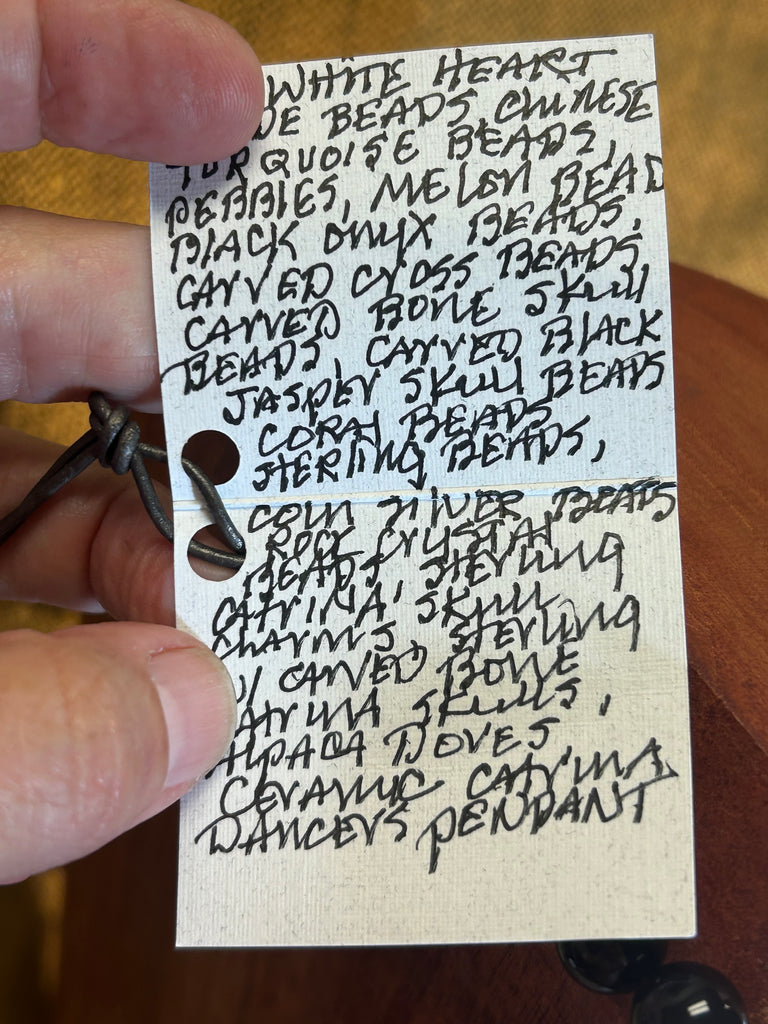 WHITE HEART
BEADS CHINESE
TURQUOISE BEADS,
PEBBLES, MELON BEAD
BLACK ONYX BEADS,
CARVED CROSS BEADS,
CARVED BONE SKULL
BEADS, CARVED BLACK
JASPER SKULL BEADS
CORAL BEADS
STERLING BEADS,
COIN SILVER BEADS
ROCK CRYSTAL
BEADS, STERLING
CATRINA SKULL
CHARMS, STERLING
W/ CARVED BONE
CATRINA SKULLS,
ALPACA DOVES,
CERAMIC CATRINA
DANCERS PENDANT